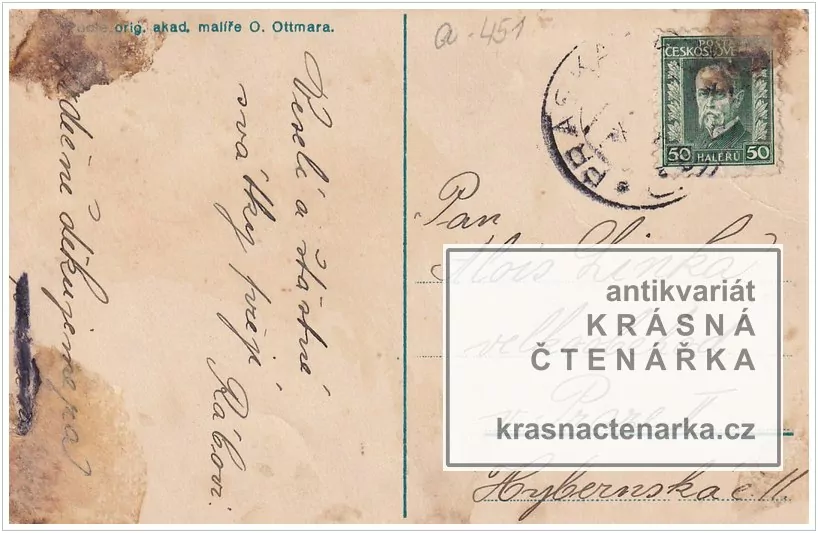 Podle orig. akad. malíře O. Ottmara.
a. 451
Veselé a šťastné
svátky přejí
Rábovi.
děkujeme za
PRAHA
ČESKOSLOVE
50 HALÉŘŮ 50
Pan
Alois Linka
velkoobchod
v Praze II
Hybernská č 11.
antikvariát
KRÁSNÁ
ČTENÁŘKA
krasnactenarka.cz